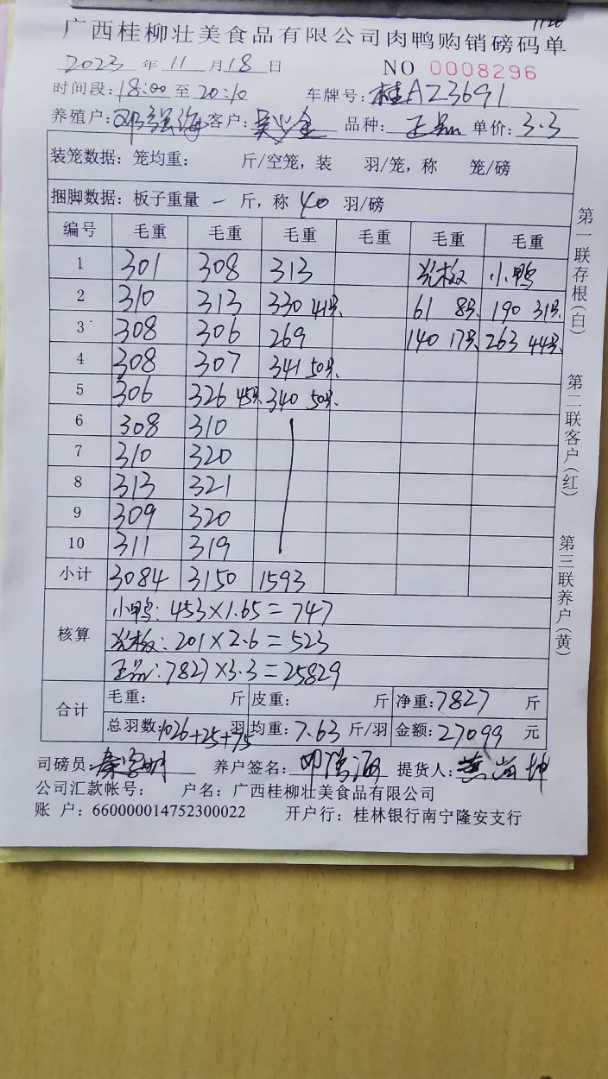 1120
广西桂柳壮美食品有限公司肉鸭购销磅码单
2023年11月18日 NO 0008296
时间段:18:00至20:10 车牌号:桂AZ3691
养殖户:邓强海 客户: 品种:正品 单价:3.3
装笼数据:笼均重: 斤/空笼,装 羽/笼,称 笼/磅
捆脚数据:板子重量 一 斤,称 40 羽/磅
编号 毛重 毛重 毛重 毛重 毛重 毛重
1 301 308 313 光板 小鸭
2 310 313 330 41号. 61 8号. 190 31号.
3 308 306 269 140 17号. 263 44号.
4 308 307 341 50号.
5 306 326 45号. 340 50号.
6 308 310
7 310 320
8 313 321
9 309 320
10 311 319
小计 3084 3150 1593
核算 小鸭:453×1.65=747
光板:201×2.6=523
正品:7827×3.3=25829
合计 毛重: 斤 皮重: 斤 净重:7827 斤
总羽数:1026+25+75 羽 均重:7.63 斤/羽 金额:27099 元
司磅员: 养户签名:邓强海 提货人:
公司汇款帐号: 户名:广西桂柳壮美食品有限公司
账 户:660000014752300022 开户行:桂林银行南宁隆安支行
第一联存根(白)
第二联客户(红)
第三联养户(黄)